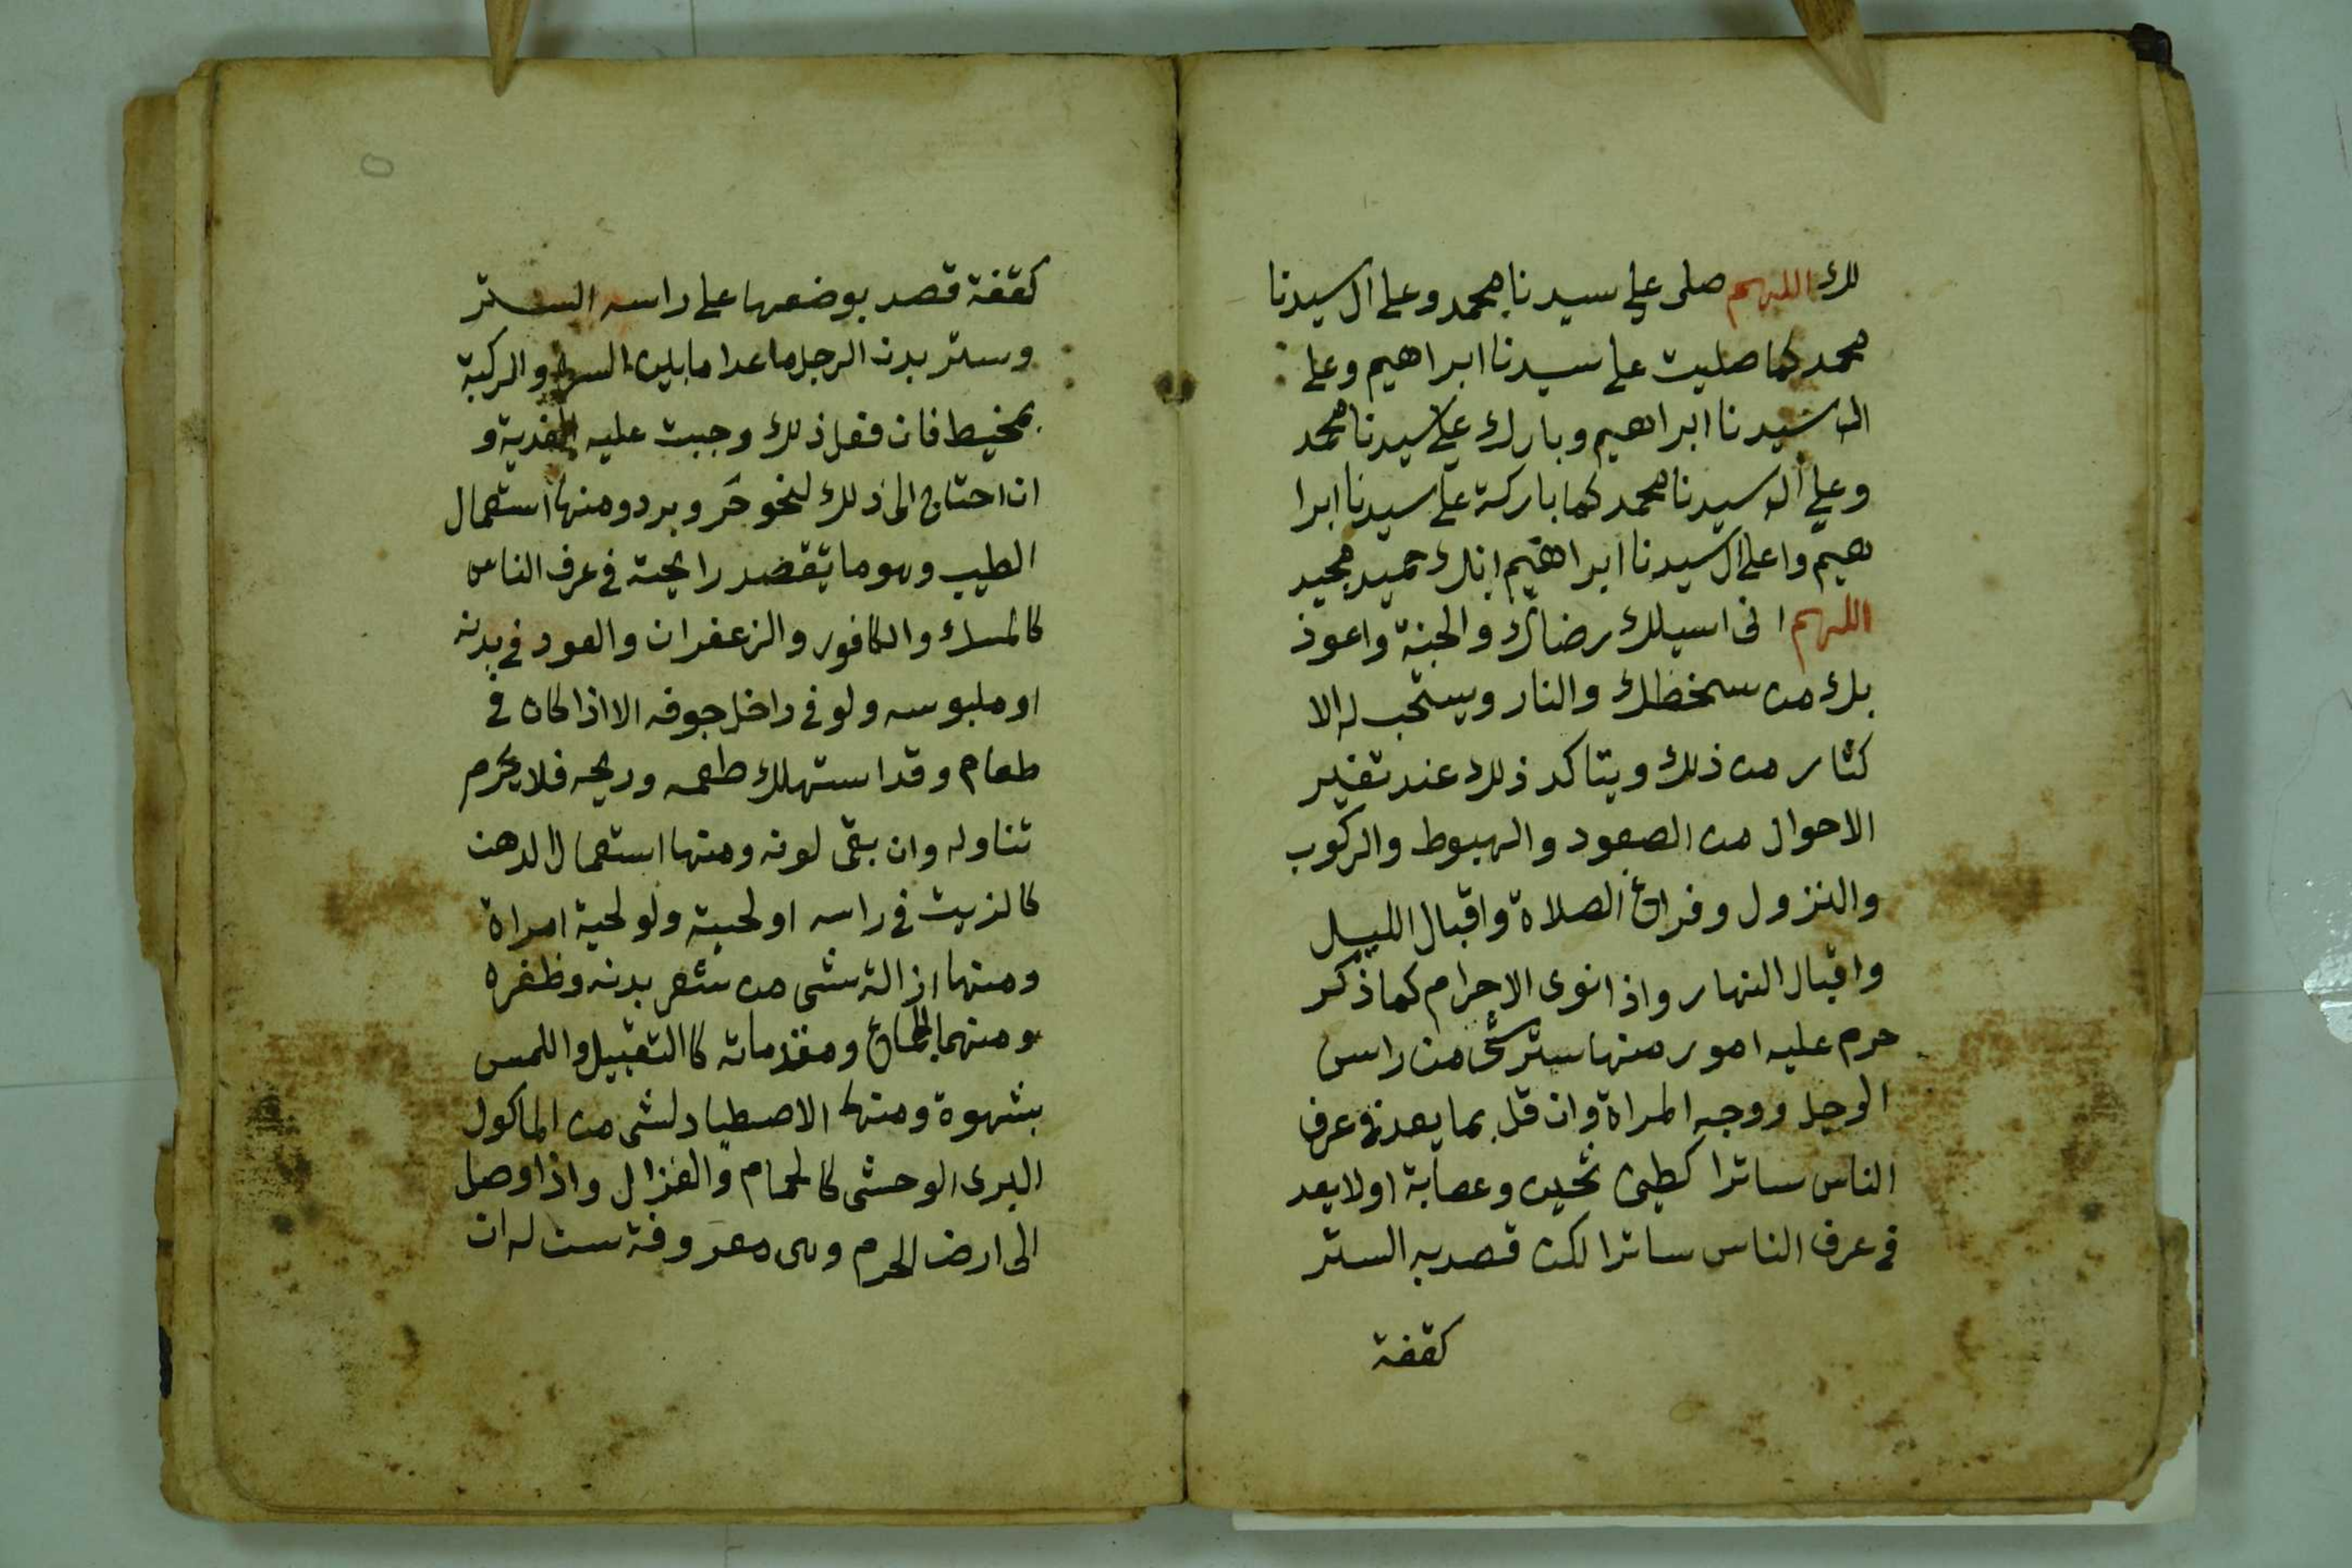 لك اللهم صلى على سيدنا محمد وعلى ال سيدنا
محمد كما صليت على سيدنا ابراهيم وعلى
ال سيدنا ابراهيم وبارك على سيدنا محمد
وعلى ال سيدنا محمد كما باركة على سيدنا ابرا
هيم واعلى ال سيدنا ابراهيم انك حميد مجيد
اللهم انى اسيلك رضاك والجنة واعوذ
بك من سخطك والنار ويستحب له الا
كثار من ذلك ويتاكد ذلك عند تغير
الاحوال من الصعود والهبوط والركوب
والنزول وفراغ الصلاة واقبال الليل
واقبال النهار واذا نوى الاحرام كما ذكر
حرم عليه امور منها ستر شى من راس
الرجل ووجه المراة وان قل بما يعد في عرف
الناس ساترا كطين ثخين وعصابة او لا يعد
في عرف الناس ساترا لكن قصد به الستر
كقفة
كقفة قصد بوضعها على راسه الستر
وستر بدن الرجل ما عدا ما بين السرة والركبة
بمخيط فان فعل ذلك وجبت عليه الفدية و
ان احتاج الى ذلك لنحو حر وبرد ومنها استعمال
الطيب وهو ما يقصد رايحته في عرف الناس
كالمسك والكافور والزعفران والعود في بدنه
او ملبوسه ولو في داخل جوفه الا اذا كان في
طعام وقد استهلك طعمه وريحه فلا يحرم
تناوله وان بقى لونه ومنها استعمال الدهن
كالزيت في راسه او لحيته ولو لحية امراة
ومنها ازالة شى من شعر بدنه وظفره
ومنها الجماع ومقدماته كالتقبيل واللمس
بشهوة ومنها الاصطياد لشى من الماكول
البرى الوحشى كالحمام والغزال واذا وصل
الى ارض الحرم وهى معروفة سن له ان